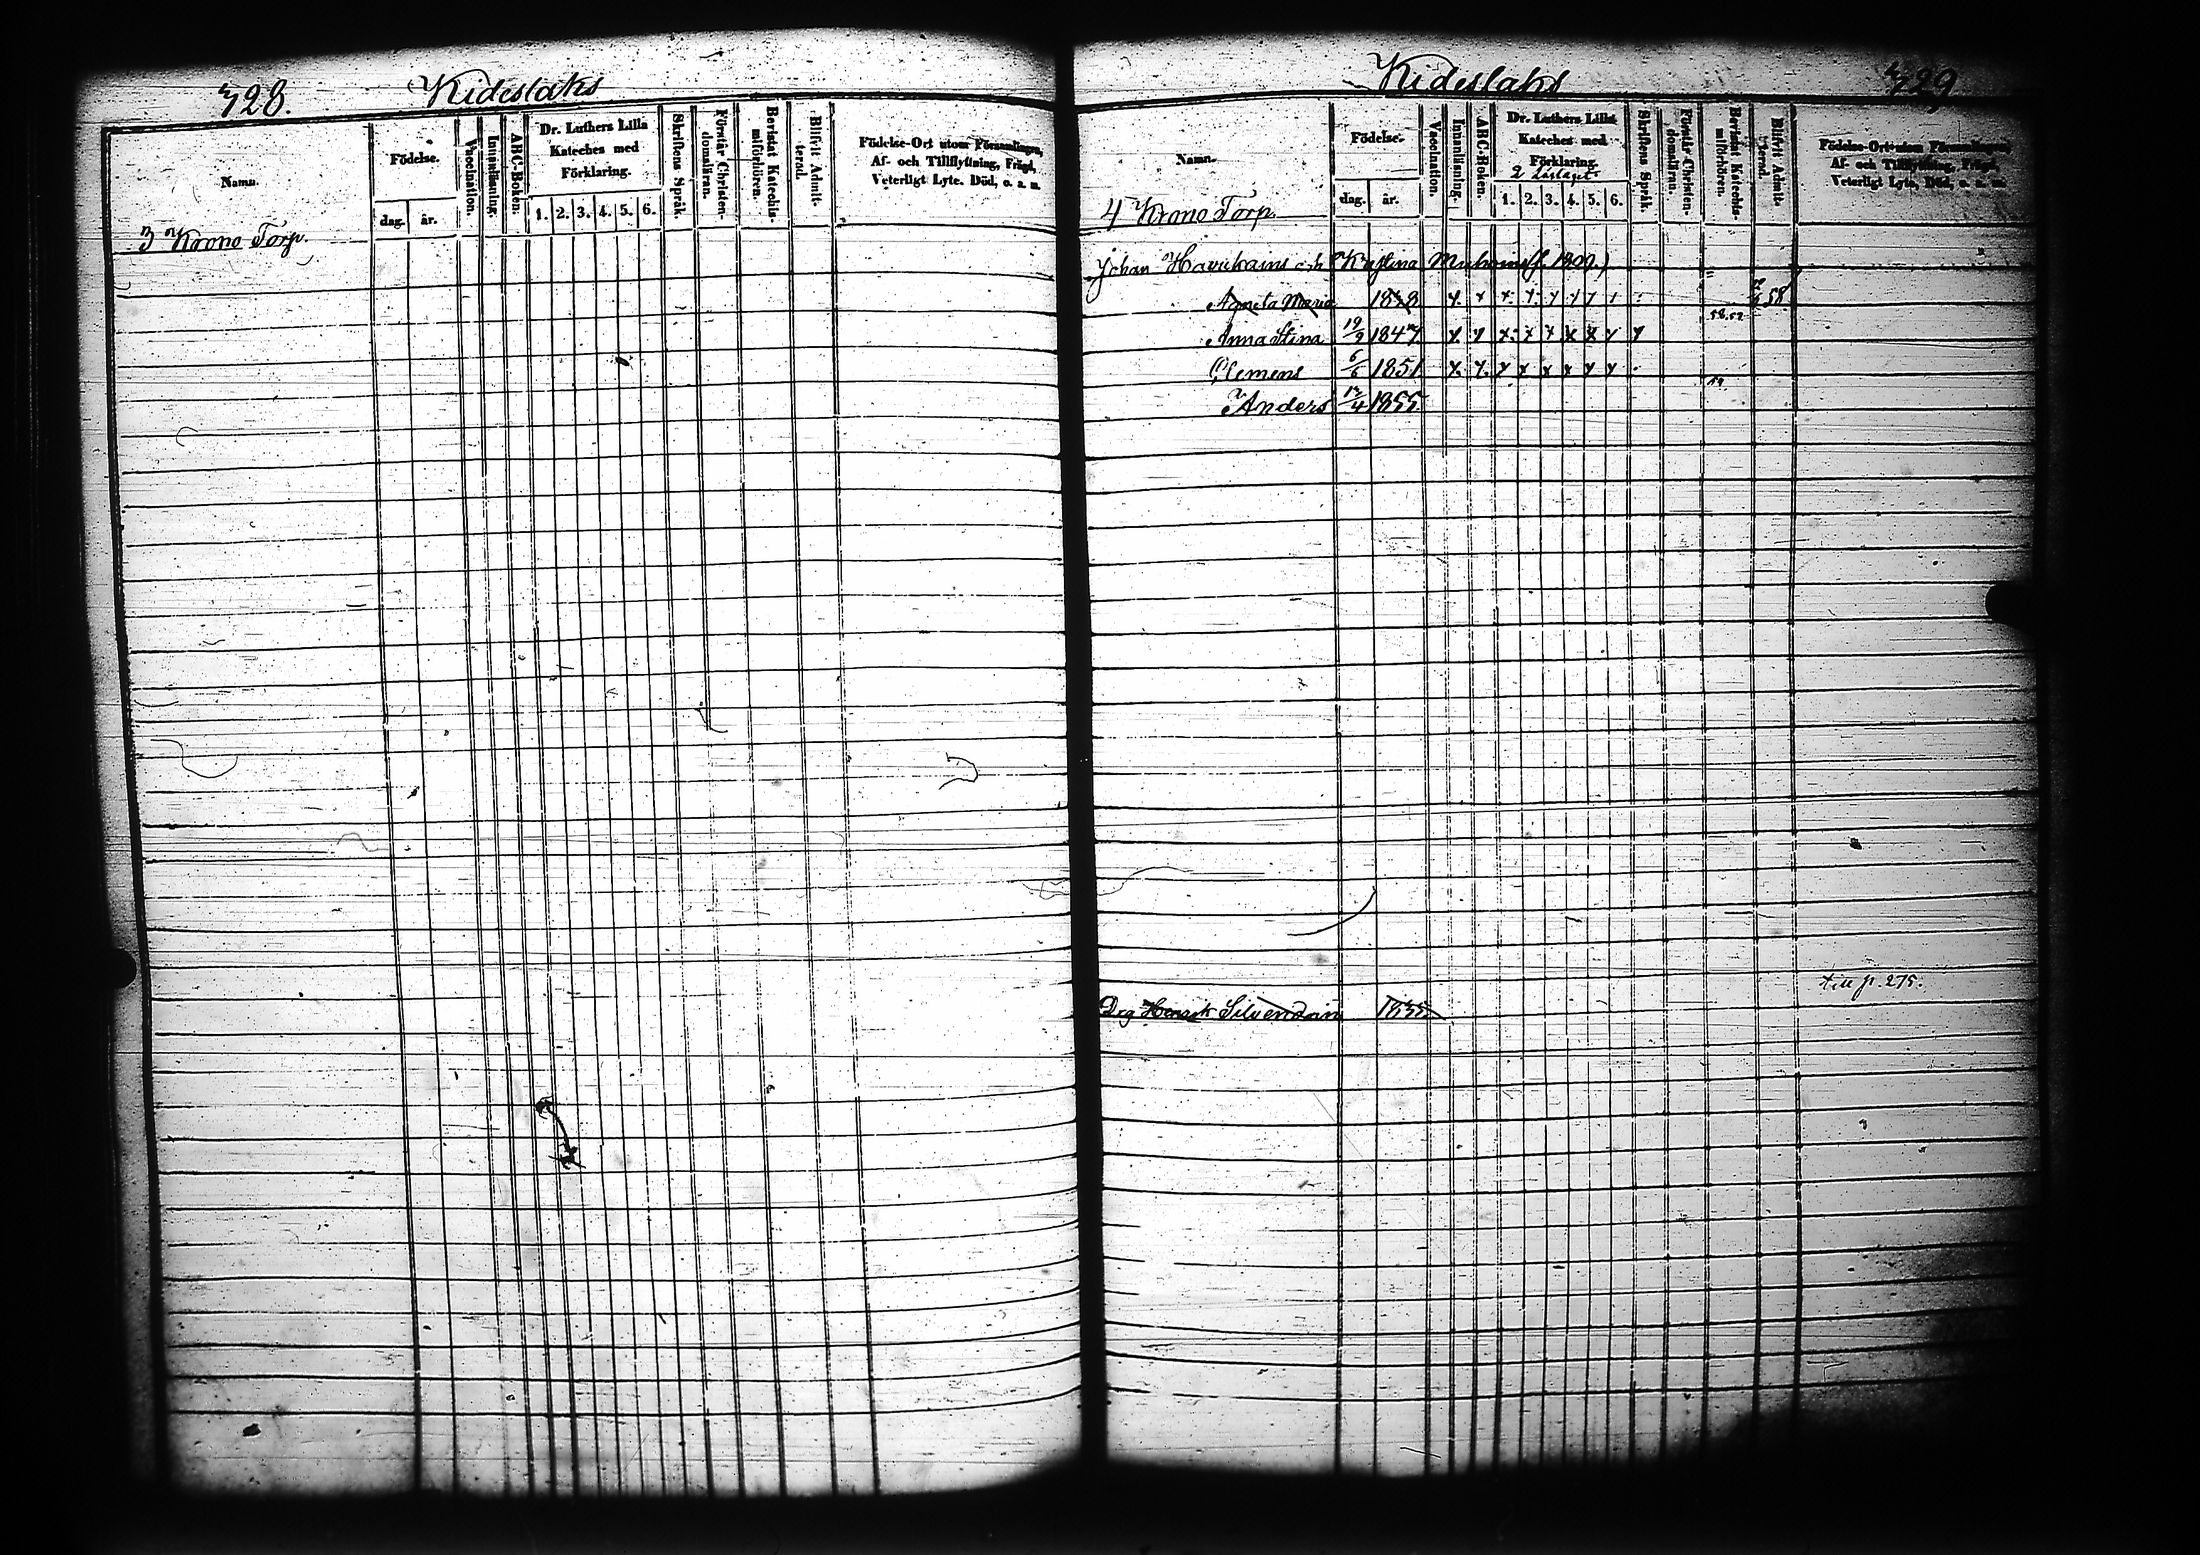 728. Kideslaks
Namn.
Födelse.
dag. år.
Vaccination.
Innanläsning.
ABC-Boken.
Dr. Luthers Lilla Kateches med Förklaring.
1. 2. 3. 4. 5. 6.
Skriftens Språk.
Förstår Christendomsläran.
Bevistat Katechismiförhören.
Blifvit Admitterad.
Födelse-Ort utom Församlingen,
Af- och Tillflyttning, Frägd,
Veterligt Lyte. Död, o. s. v.
3 Krono Torp.
Kideslaks 729
Namn.
Födelse.
dag. år.
Vaccination.
Innanläsning.
ABC-Boken.
Dr. Luthers Lilla Kateches med Förklaring.
1. 2. 3. 4. 5. 6.
Skriftens Språk.
Förstår Christendomsläran.
Bevistat Katechismiförhören.
Blifvit Admitterad.
Födelse-Ort utom Församlingen,
Af- och Tillflyttning, Frägd,
Veterligt Lyte. Död, o. s. v.
4 Krono Torp.
Johan och Kristina
Agneta Maria 58
Anna Stina 19/9 1847 x x x x x x x x x
Clemens 6/6 1851 x x x x x x x x
Anders 12/4 1855
till p. 275.
Drg Henrik Silvendoin 1835